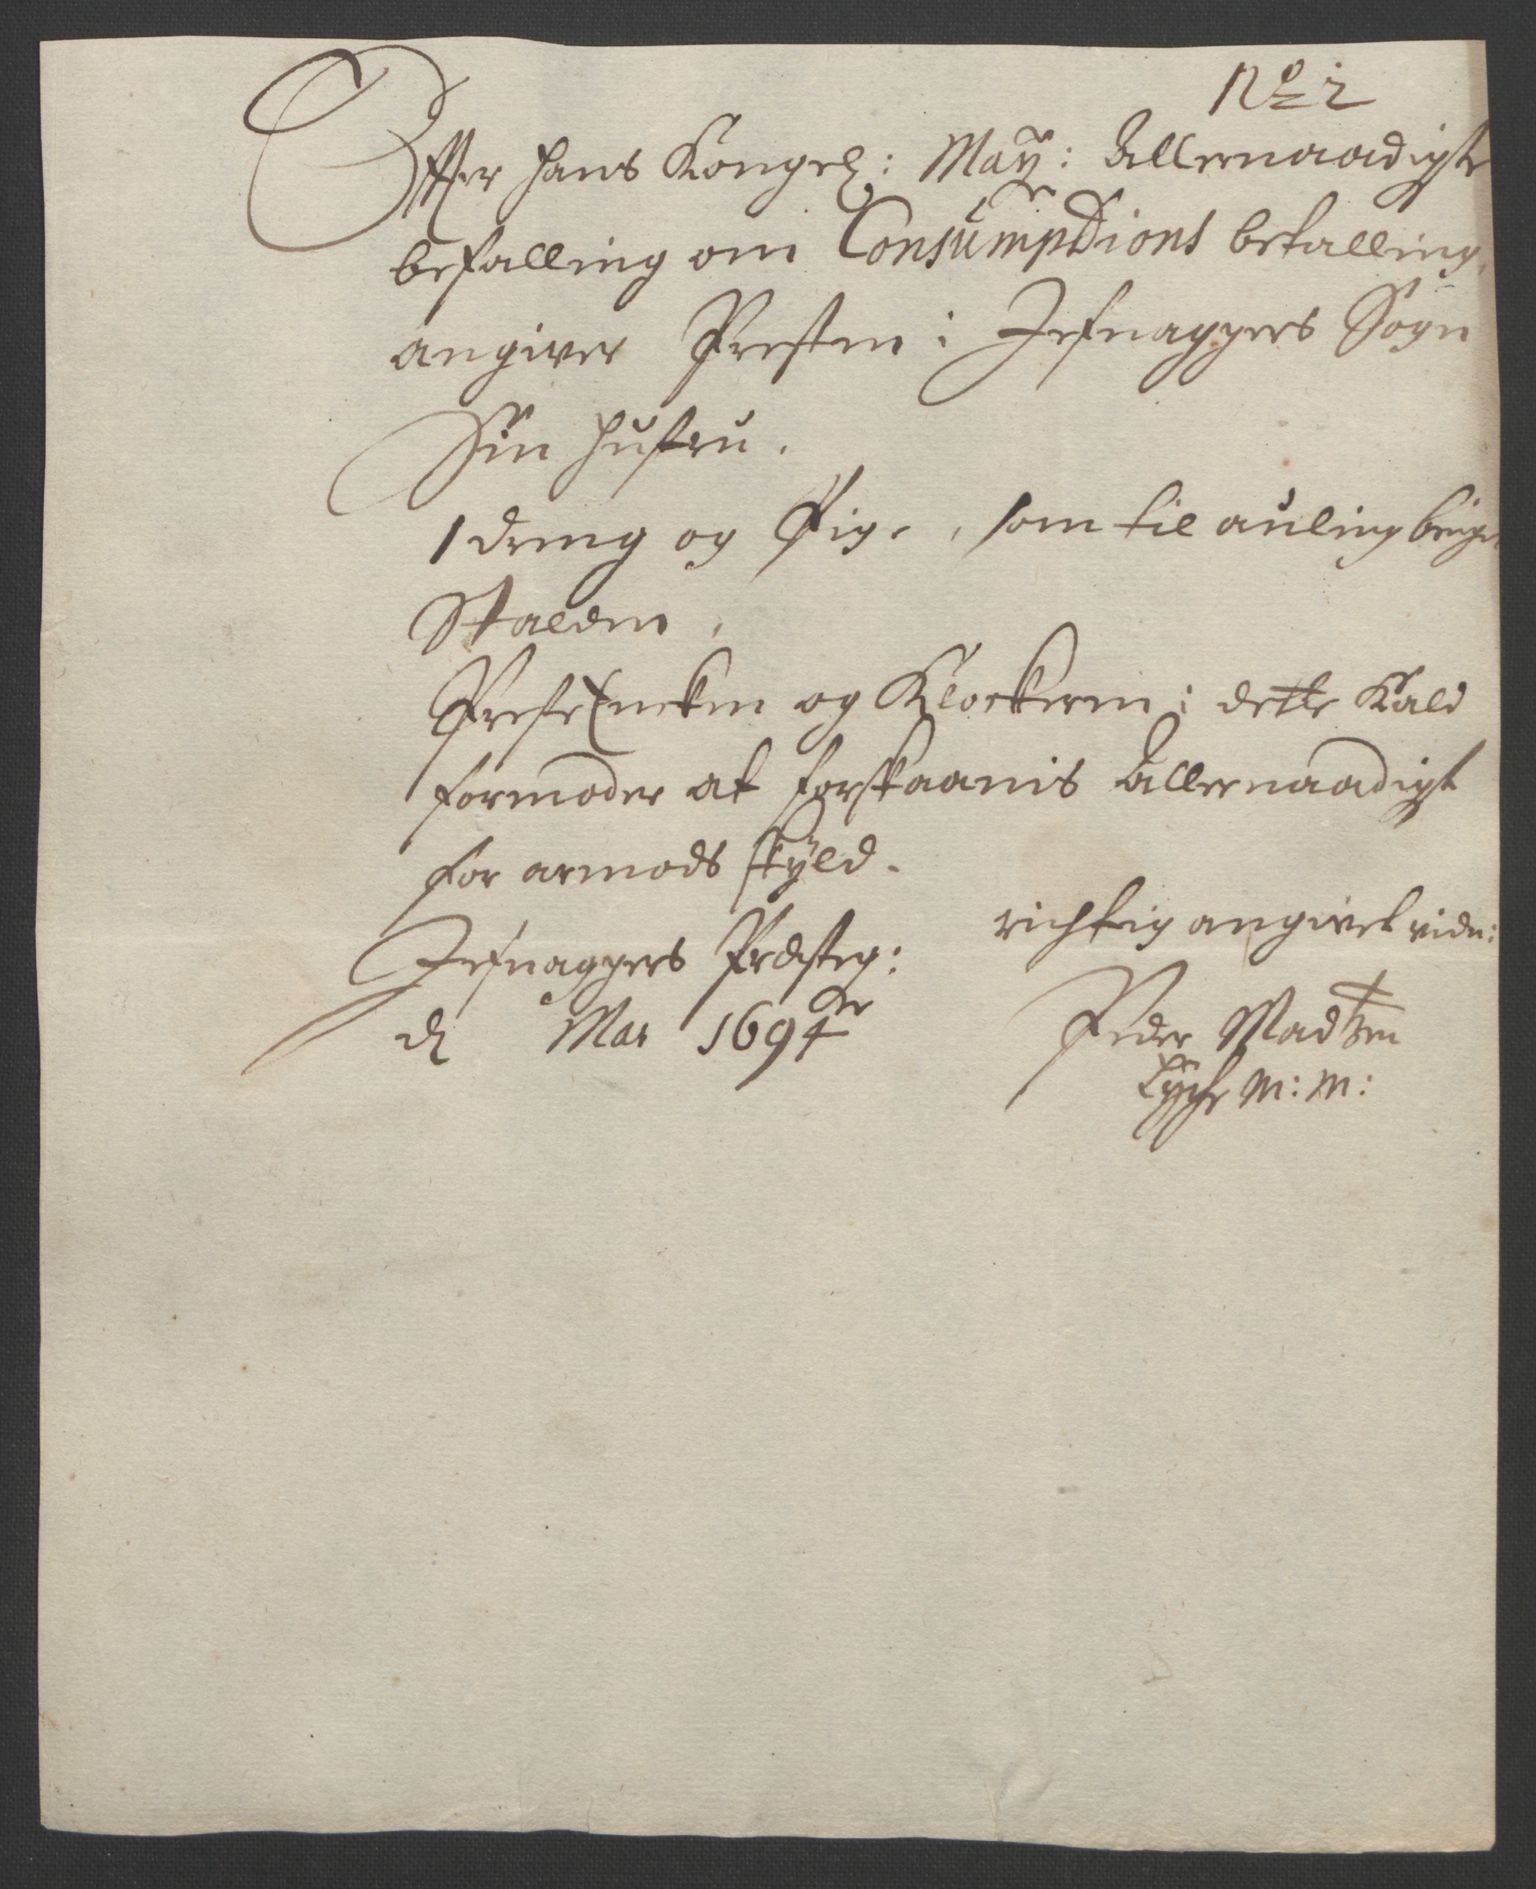 No 2
Effter Hans Kongel: May: Allernaadigste
befalling om Consumptions betalling,
angiver Presten i Jefnagers Sogn
Sin hustru.
1 dreng og Pige, som til auling bruges
Stalden,
PresteEncken og Klockeren i dette Kald
formoder at forskaanis Allernaadigst
for armods skyld.
richtig angivet vidn:
Jefnagers Præsteg:
d Mar 1694
Peder Madtzen
Lyche m: m: